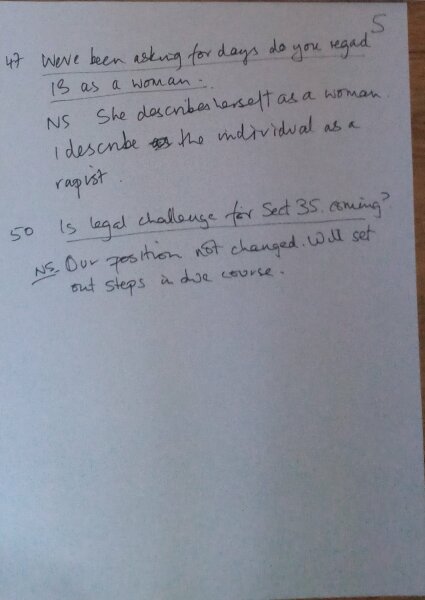 5
47 We've been asking for days do you regad
IB as a woman.
NS She describes herself as a woman.
I describe the individual as a
rapist.
50 Is legal challenge for Sect 35. coming?
NS. Our position not changed. Will set
out steps in due course.